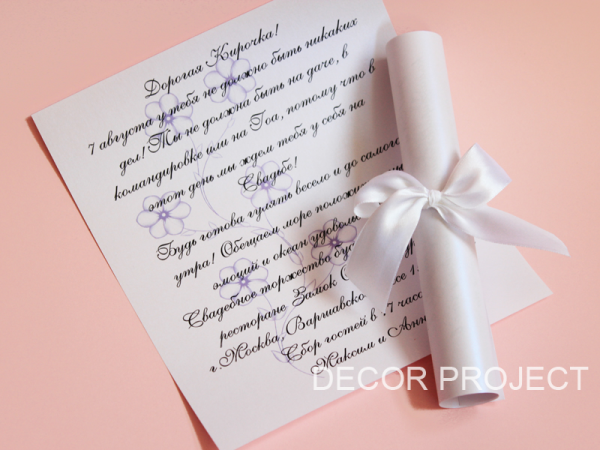 Дорогая Кирочка!
7 августа у тебя не должно быть никаких
дел! Ты не должна быть на даче, в
командировке или на Гоа, потому что в
этот день мы ждем тебя у себя на
Свадьбе!
Будь готова гулять весело и до самого
утра! Обещаем море
эмоций и океан
Свадебное торжество
ресторане Замок
г.Москва, Варшавское
Сбор гостей в
Максим и
DECOR PROJECT